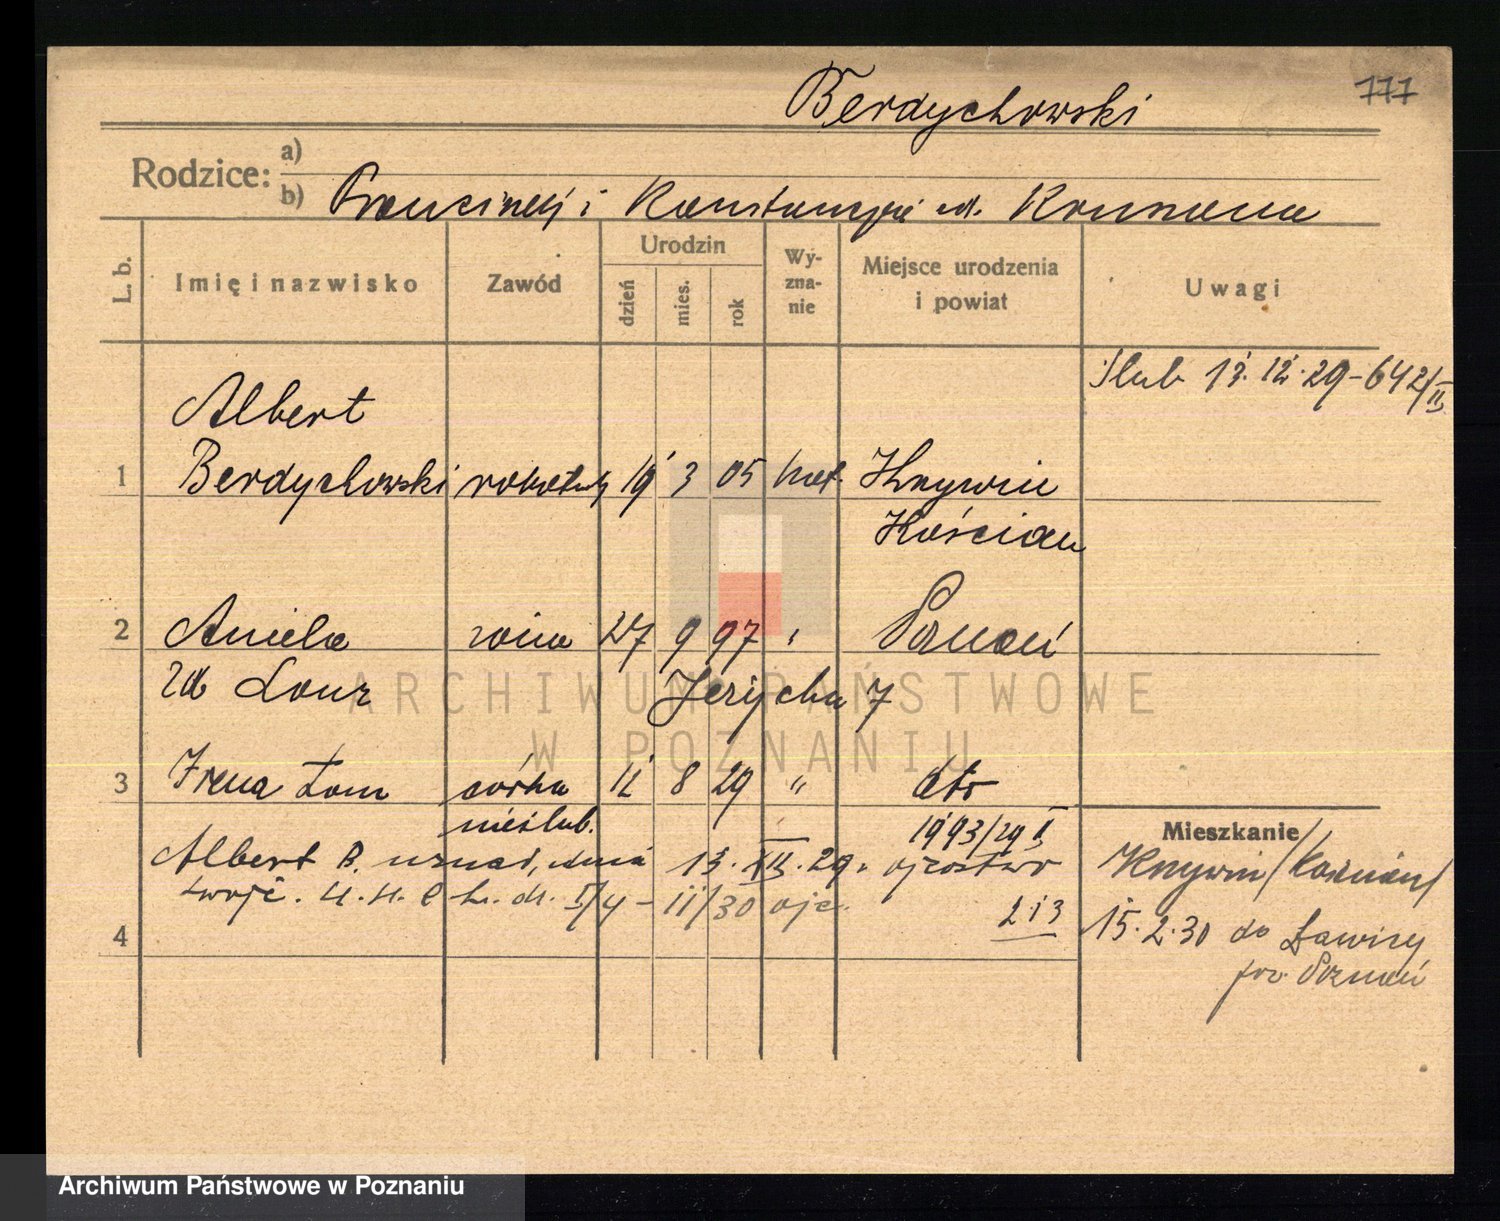 777
Berdychowski
Rodzice: a)
b) Franciszek i Konstancja
L. b.
Imię i nazwisko
Zawód
Urodzin
dzień
mies.
rok
Wy-
zna-
nie
Miejsce urodzenia
i powiat
Uwagi
Ślub 13. 12. 29 - 642/II
Albert
1 Berdychowski robotnik 19 3 05 kat. Krzywin
Kościan
2 Aniela żona 27 9 97 " Poznań
Jerycha 7
3 Irena córka 11 8 29 "
nieślub. 1993/29 I
Mieszkanie
Albert B. uznał, dnia 13. XII. 29. ojcostwo
Krzywin /Kościan/
II/30
2 i 3
4
15. 2. 30 do Ławicy
pow. Poznań
ARCHIWUM PAŃSTWOWE
W POZNANIU
Archiwum Państwowe w Poznaniu